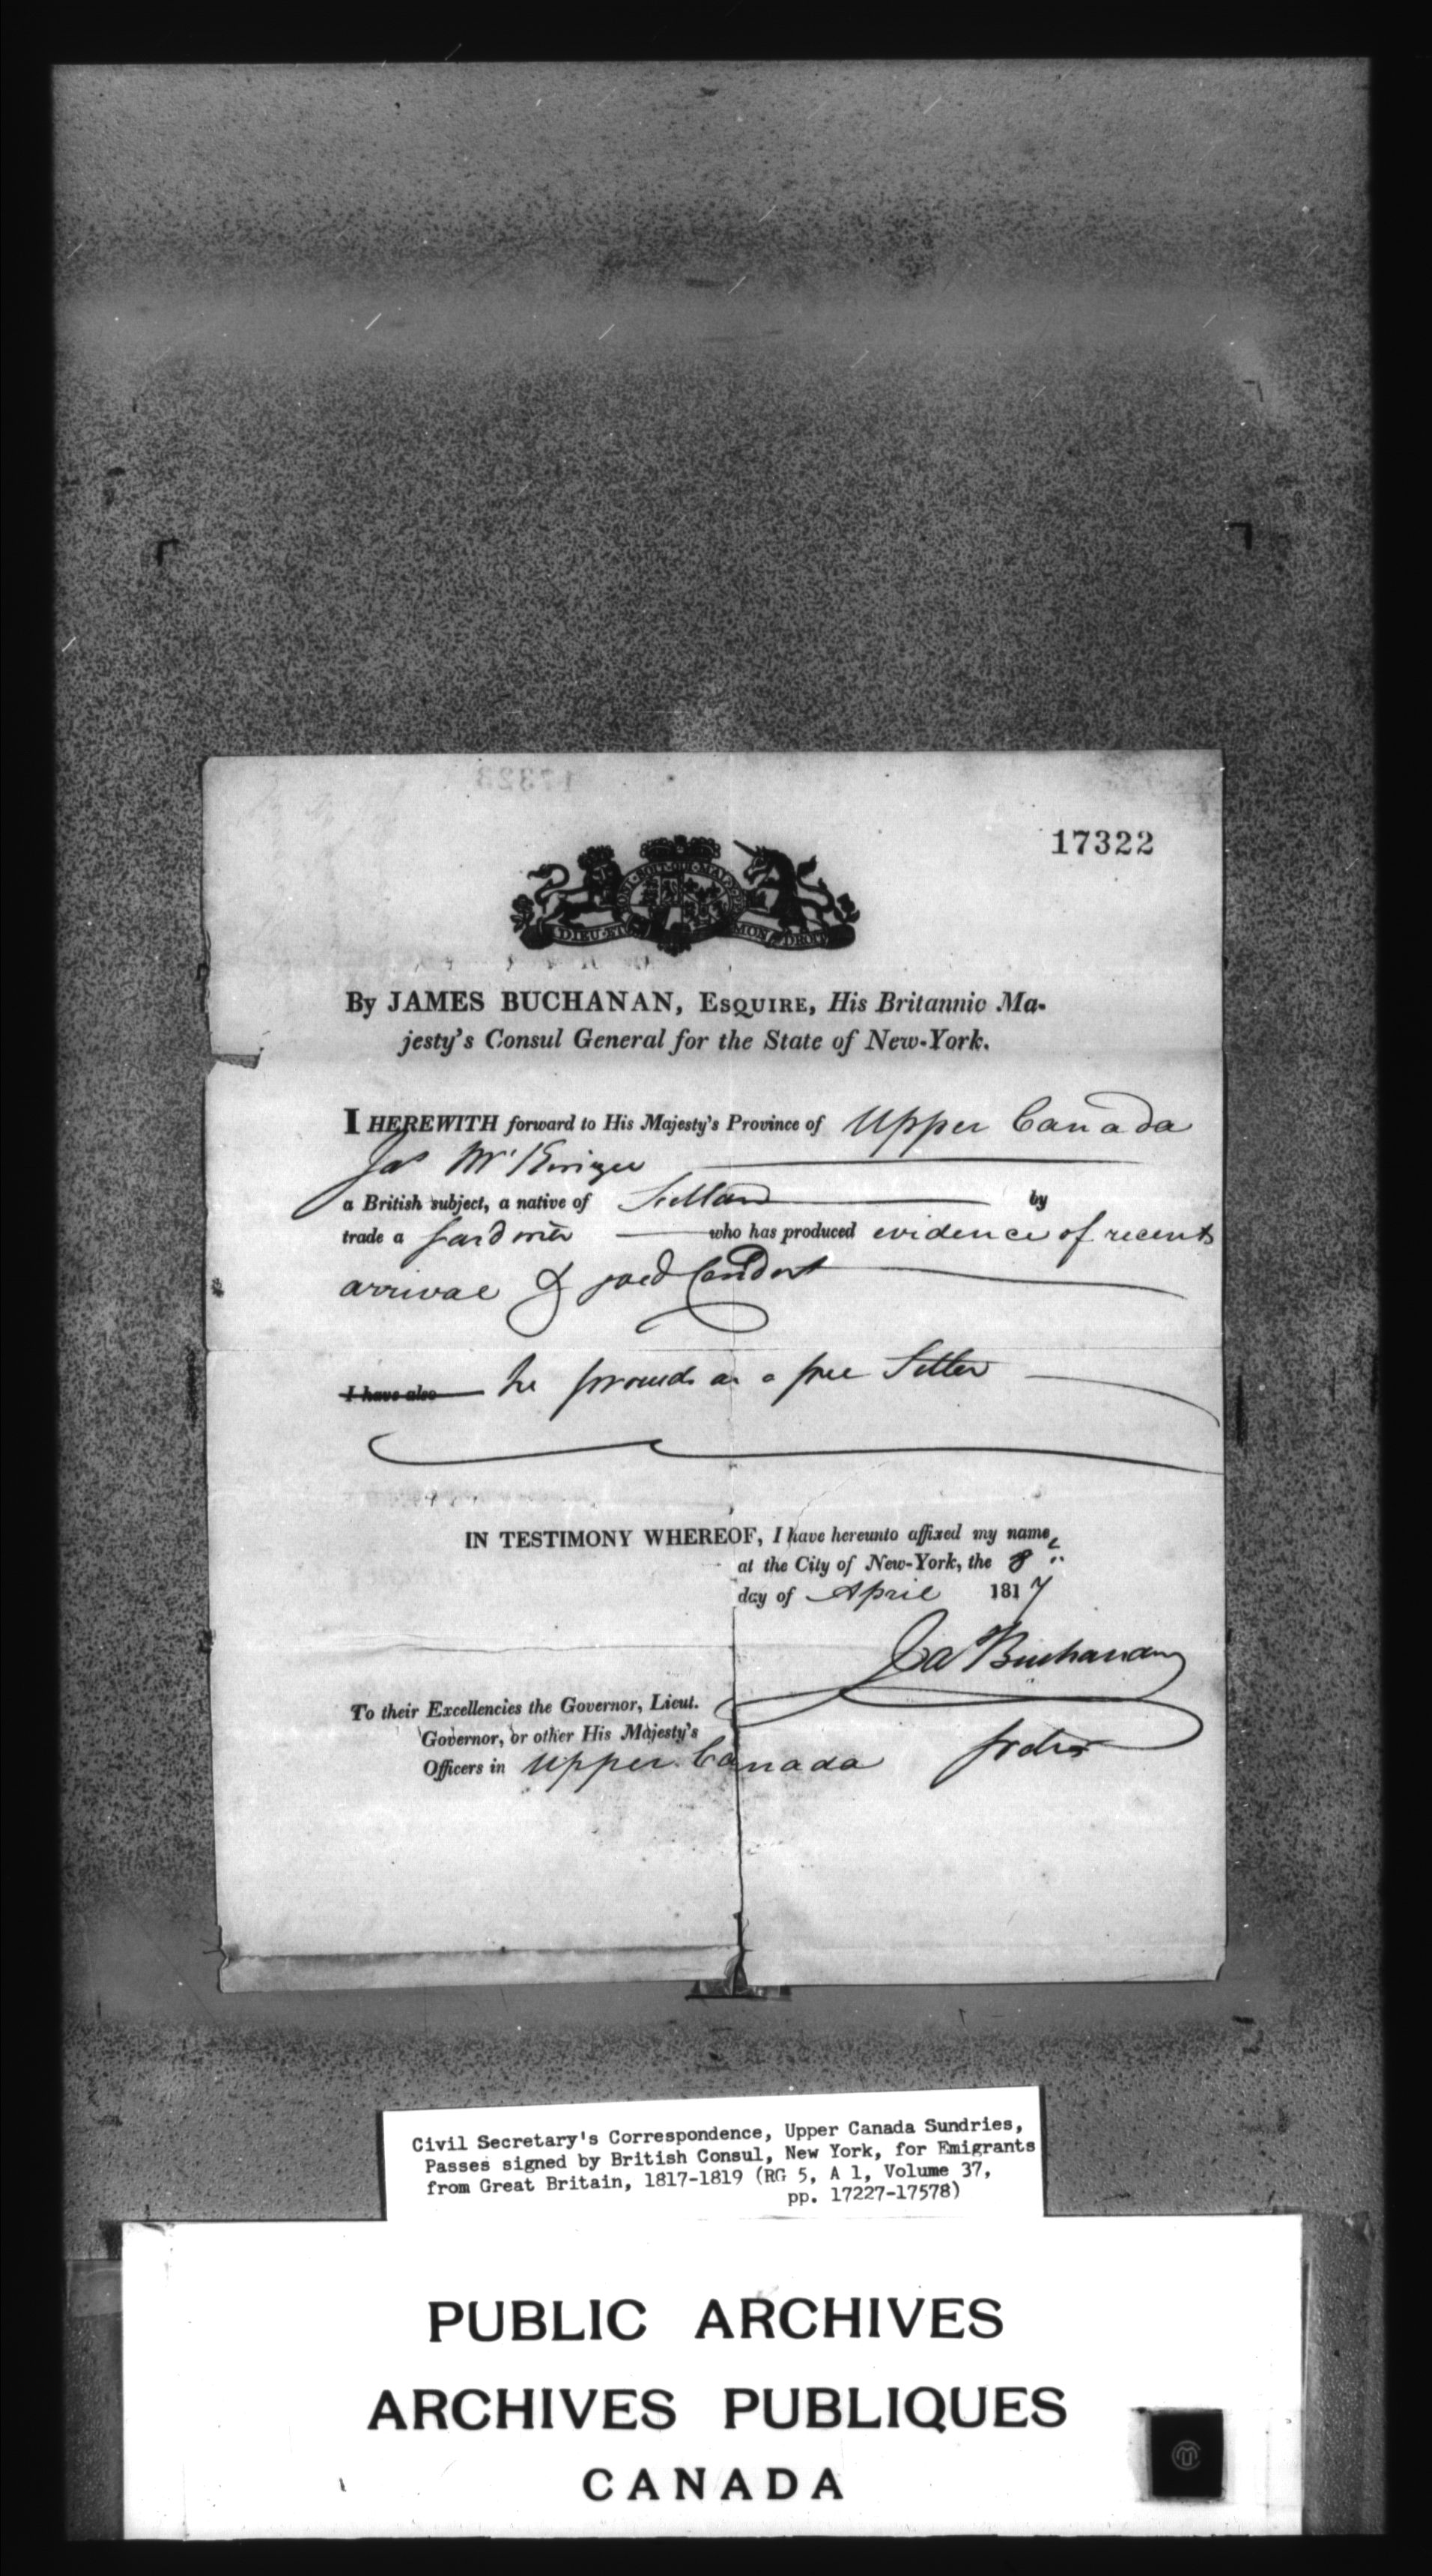 17322
SOIT·QUI·MAL
DIEU·ET MON DROIT
By JAMES BUCHANAN, ESQUIRE, His Britannic Ma-
jesty's Consul General for the State of New-York.
I HEREWITH forward to His Majesty's Province of Upper Canada
Jas
a British subject, a native of Scotland by
trade a Gardner who has produced evidence of recent
arrival & good Conduct
I have also he proceeds as a free Settler
IN TESTIMONY WHEREOF, I have hereunto affixed my name,
at the City of New-York, the 8
day of April 1817
Jas Buchanan
To their Excellencies the Governor, Lieut.
Governor, or other His Majesty's
Officers in Upper Canada
Civil Secretary's Correspondence, Upper Canada Sundries,
Passes signed by British Consul, New York, for Emigrants
from Great Britain, 1817-1819 (RG 5, A 1, Volume 37,
pp. 17227-17578)
PUBLIC ARCHIVES
ARCHIVES PUBLIQUES
CANADA